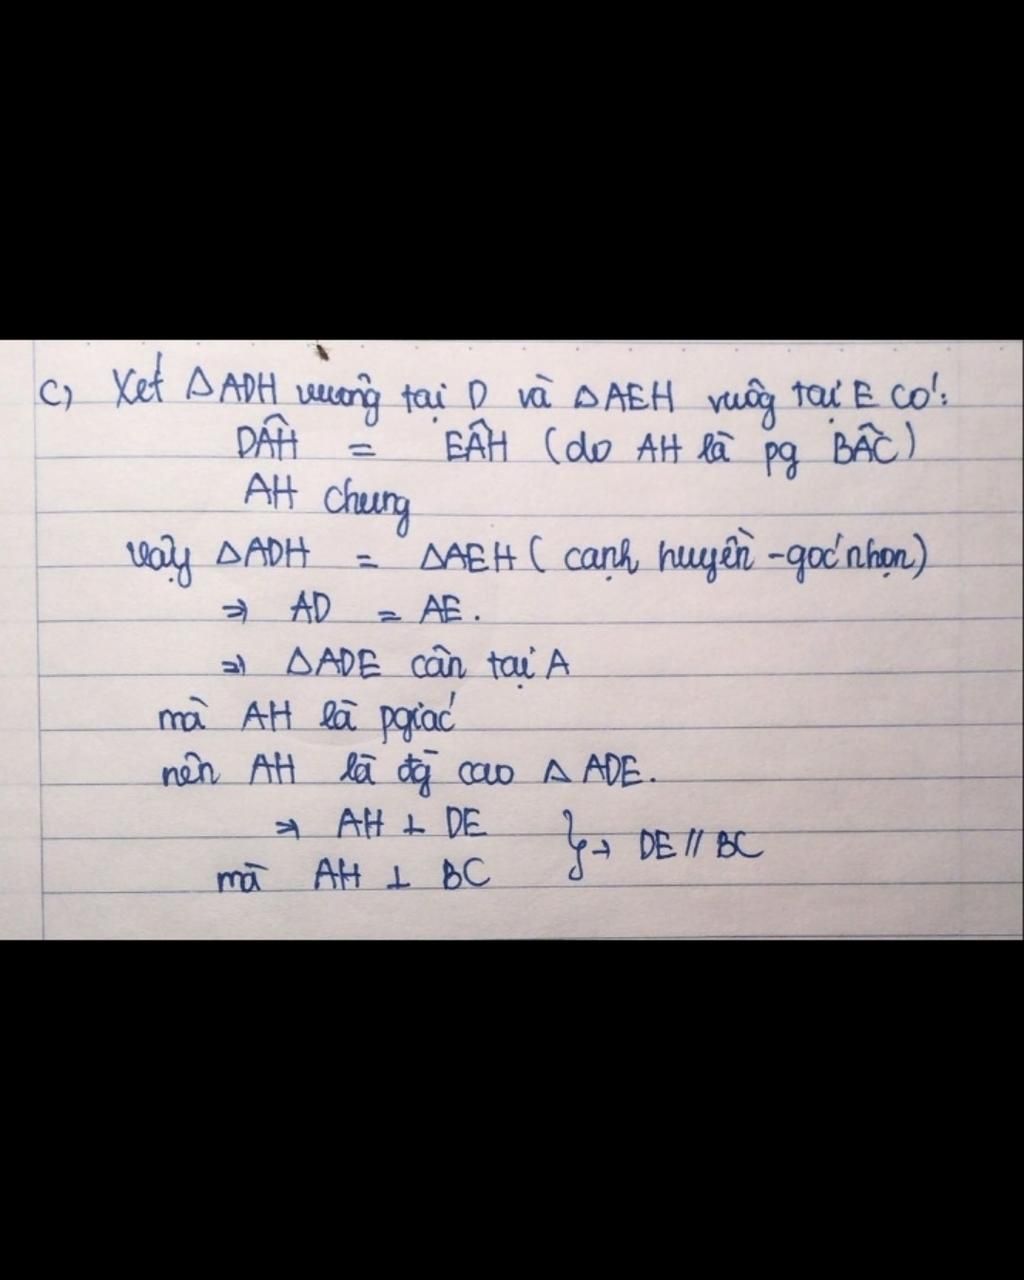 c) Xét ΔADH vuông tại D và ΔAEH vuôg tại E có:
DÂH = EÂH (do AH là pg BÂC)
AH chung
vậy ΔADH = ΔAEH (cạnh huyền - góc nhọn)
⇒ AD = AE.
⇒ ΔADE cân tại A
mà AH là pgiác
nên AH là đg cao Δ ADE.
⇒ AH ⊥ DE
mà AH ⊥ BC } → DE // BC